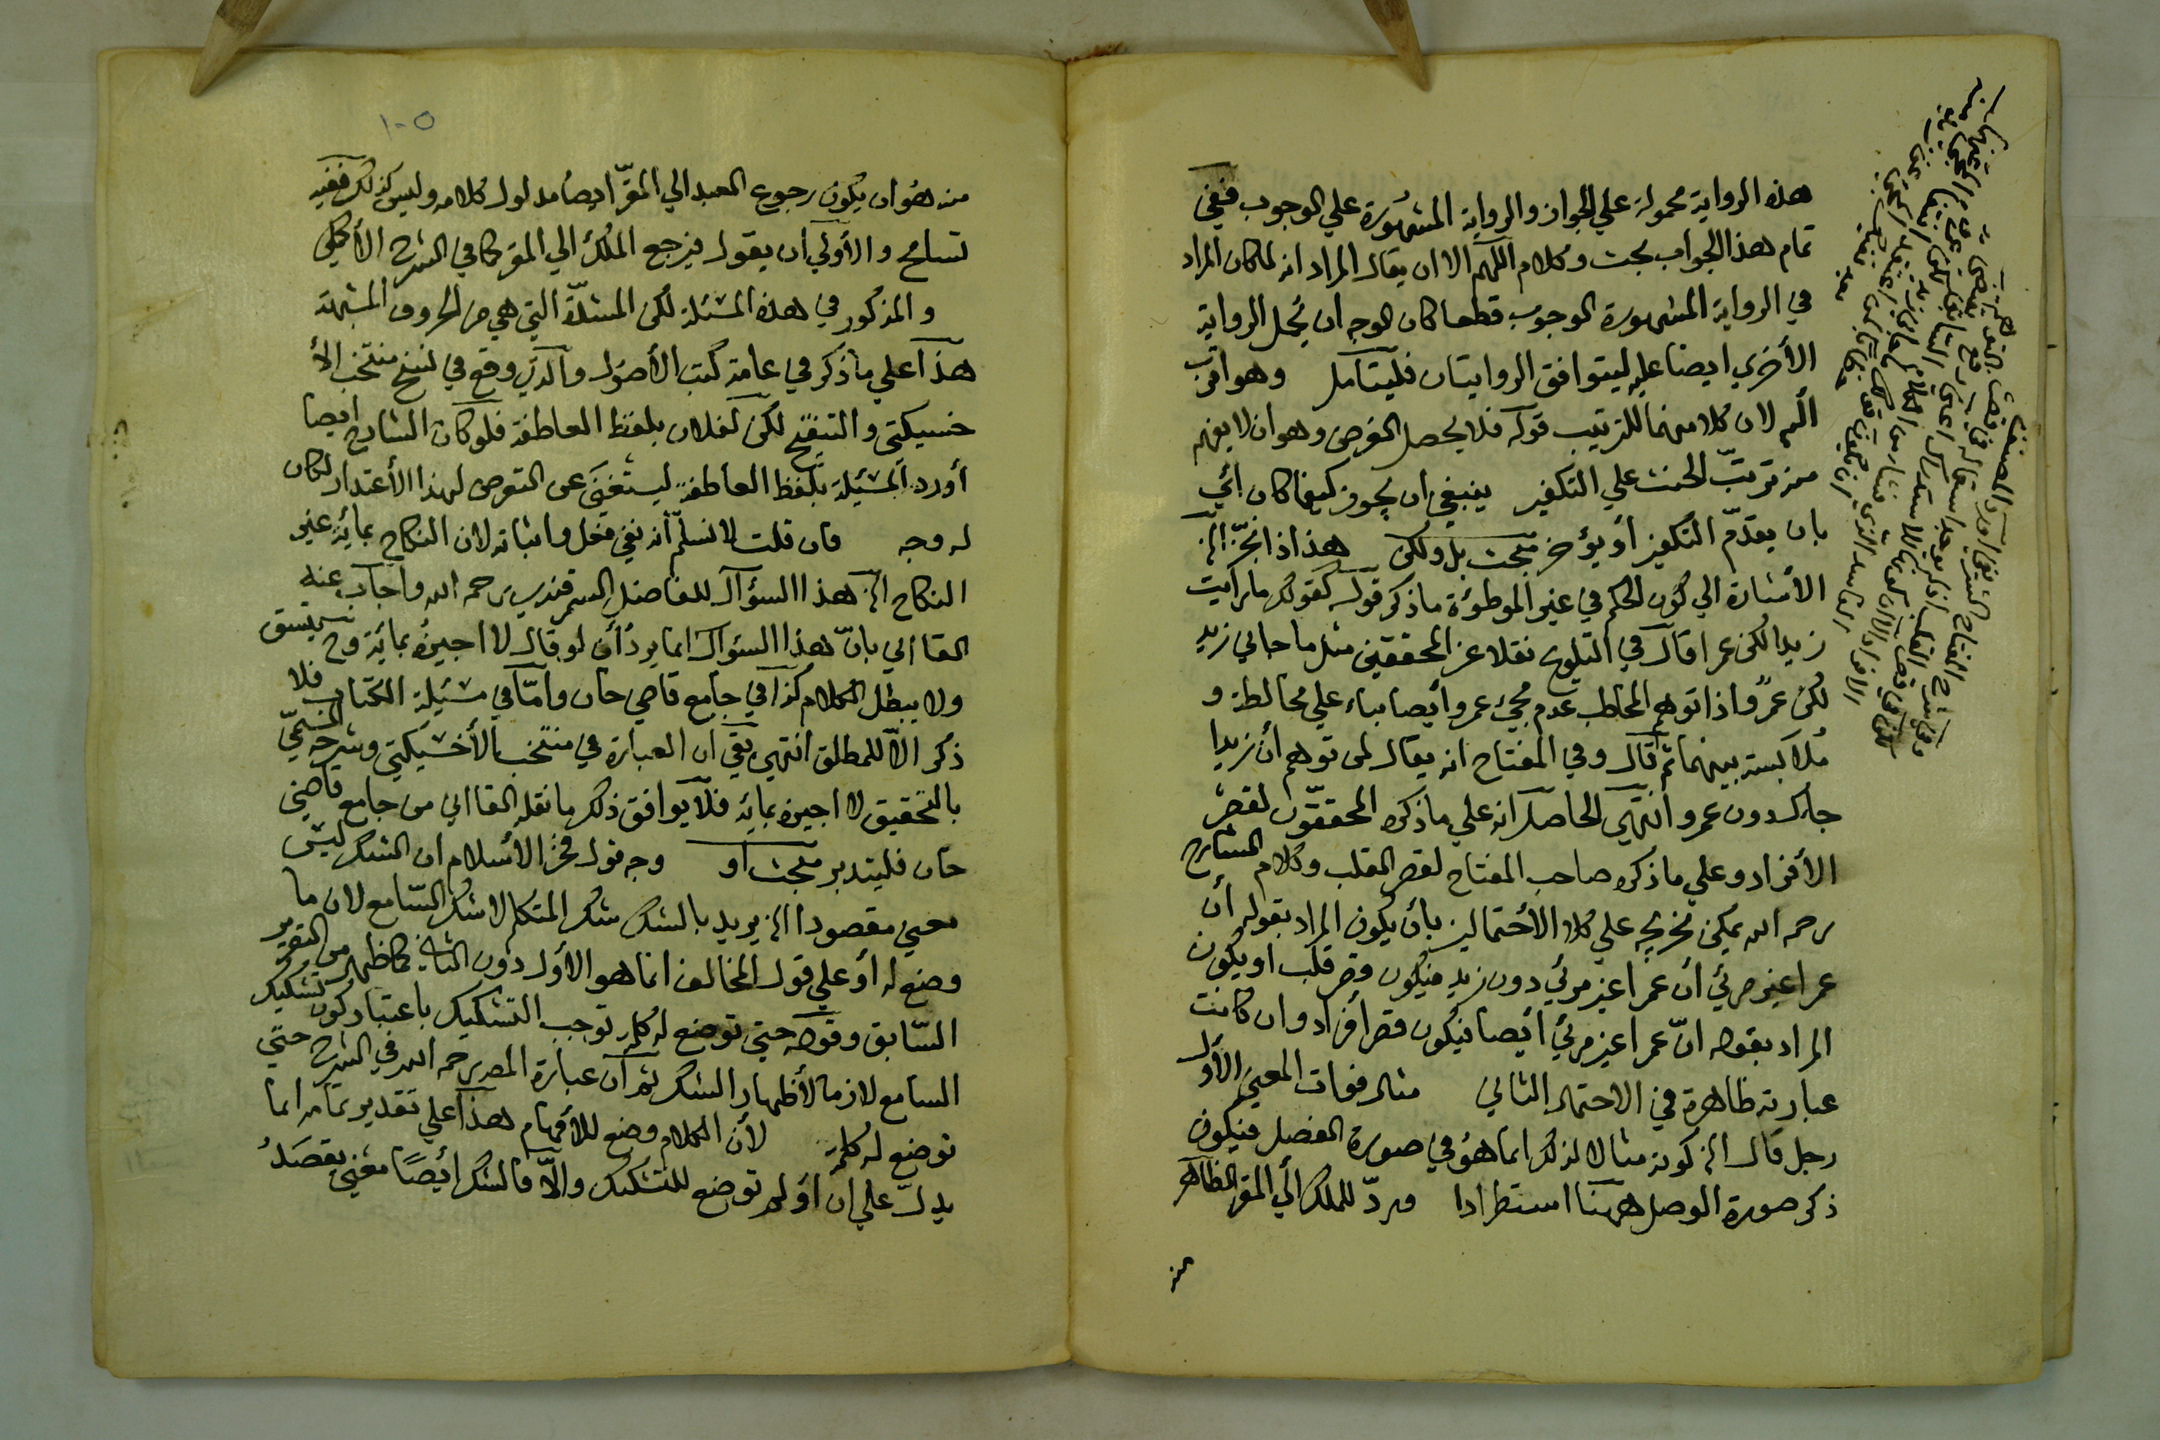 هذه الرواية محمولة علي الجواز والرواية المشهورة علي الوجوب ففي
تمام هذا الجواب بحث وكلام اللهم الا ان يقال المراد انه لما كان المراد
في الرواية المشهورة الوجوب قطعا كان الوجه ان يحمل الرواية
الأخري ايضا عليه ليتوافق الروايتان فليتأمل وهو اقرب
الخ لان كلا منهما للترتيب قوله فلا يحصل الغرض وهو ان لا يفهم
منه ترتب الحنث علي التكفير ينبغي ان يجوز كيفما كان أي
بان يقدم التكفير أو يؤخر مبحث بل ولكن هذا اذا نجز الخ
الأشارة الي كون الحكم في غير الموطوءة ما ذكر قوله كقولك ما رأيت
زيدا لكن عمرا قال في التلويح نقلا عن المحققين مثل ما جاني زيد
لكن عمرو اذا توهم المخاطب عدم مجئ عمرو أيضا بناء علي مخالطة و
ملابسة بينهما ثم قال وفي المفتاح انه يقال لمن توهم أن زيدا
جاءك دون عمرو انتهي الحاصل انه علي ما ذكره المحققون لقصر
الأفراد وعلي ما ذكره صاحب المفتاح لقصر القلب وكلام الشارح
رحمه الله يمكن تخريجه علي كلا الأحتمالين بأن يكون المراد بقوله أن
عمرا غير مرئي أن عمرا غير مرئي دون زيد فيكون قصر قلب او يكون
المراد بقوله انّ عمرا غير مرئي أيضا فيكون قصر أفراد وان كانت
عبارته ظاهرة في الاحتمال الثاني مثاله فوات المعني الأول
رجل قال الخ كونه مثالا لذلك انما هو في صورة الفصل فيكون
ذكر صورة الوصل ههنا استطرادا ويردّ للملك الي المقر الظاهر
منه
١٠٥
منه هو ان يكون رجوع العبد الي المقرّ ايضا مدلول كلامه وليس كذلك ففيه
تسامح والأولي ان يقول فيرجع الملك الي المقر كما في الشرح الأكملي
و المذكور في هذه المسئلة لكن المشدّدة التي هي من الحروف المشبهة
هذا علي ما ذكر في عامة كتب الأصول والذي وقع في نسخ منتخب الأ
خسيكتي والتنقيح لكن لفلان بلفظ العاطفة فلو كان الشارح ايضا
أورد المسئلة بلفظ العاطفة ليستغني عن التعرض لهذا الأعتذار لكان
له وجه فان قلت لا نسلّم أنه نفي فعل واثباته لان النكاح بماية غير
النكاح الخ هذا السؤال للفاضل السمرقندي رحمه الله وأجاب عنه
القاآني بانّ هذا السؤال انما يرد أن لو قال لا اجيزه بماية وح يتسق
ولا يبطل الكلام كذا في جامع قاضي خان وأمّا في مسئلة الكتاب فلا
ذكر الّا للمطلق انتهي بقي ان العبارة في منتخب الأخسيكتي وشرحه المسمّي
بالتحقيق لا اجيزه بماية فلا يوافق ذلك ما نقله القاآني من جامع قاضي
خان فليتدبر مبحث أو وجه قول فخر الأسلام ان الشك ليس
معني مقصودا الخ يريد بالشك شك المتكلم لا شك السّامع لان ما
وضع له أو علي قول المخالف انما هو الأول دون الثاني كما ظهر من التقرير
السّابق وقوله حتي توضع له كلمة توجب التشكيك باعتبار كون تشكيك
السامع لازما لأظهار الشك ثم ان عبارة المص رحمه الله في الشرح حتي
توضع له كلمة لأن الكلام وضع للأفهام هذا علي تقدير تمامه انما
يدلّ علي ان أو لم توضع للتشكيك والّا فالشك أيضًا معني يقصدُ